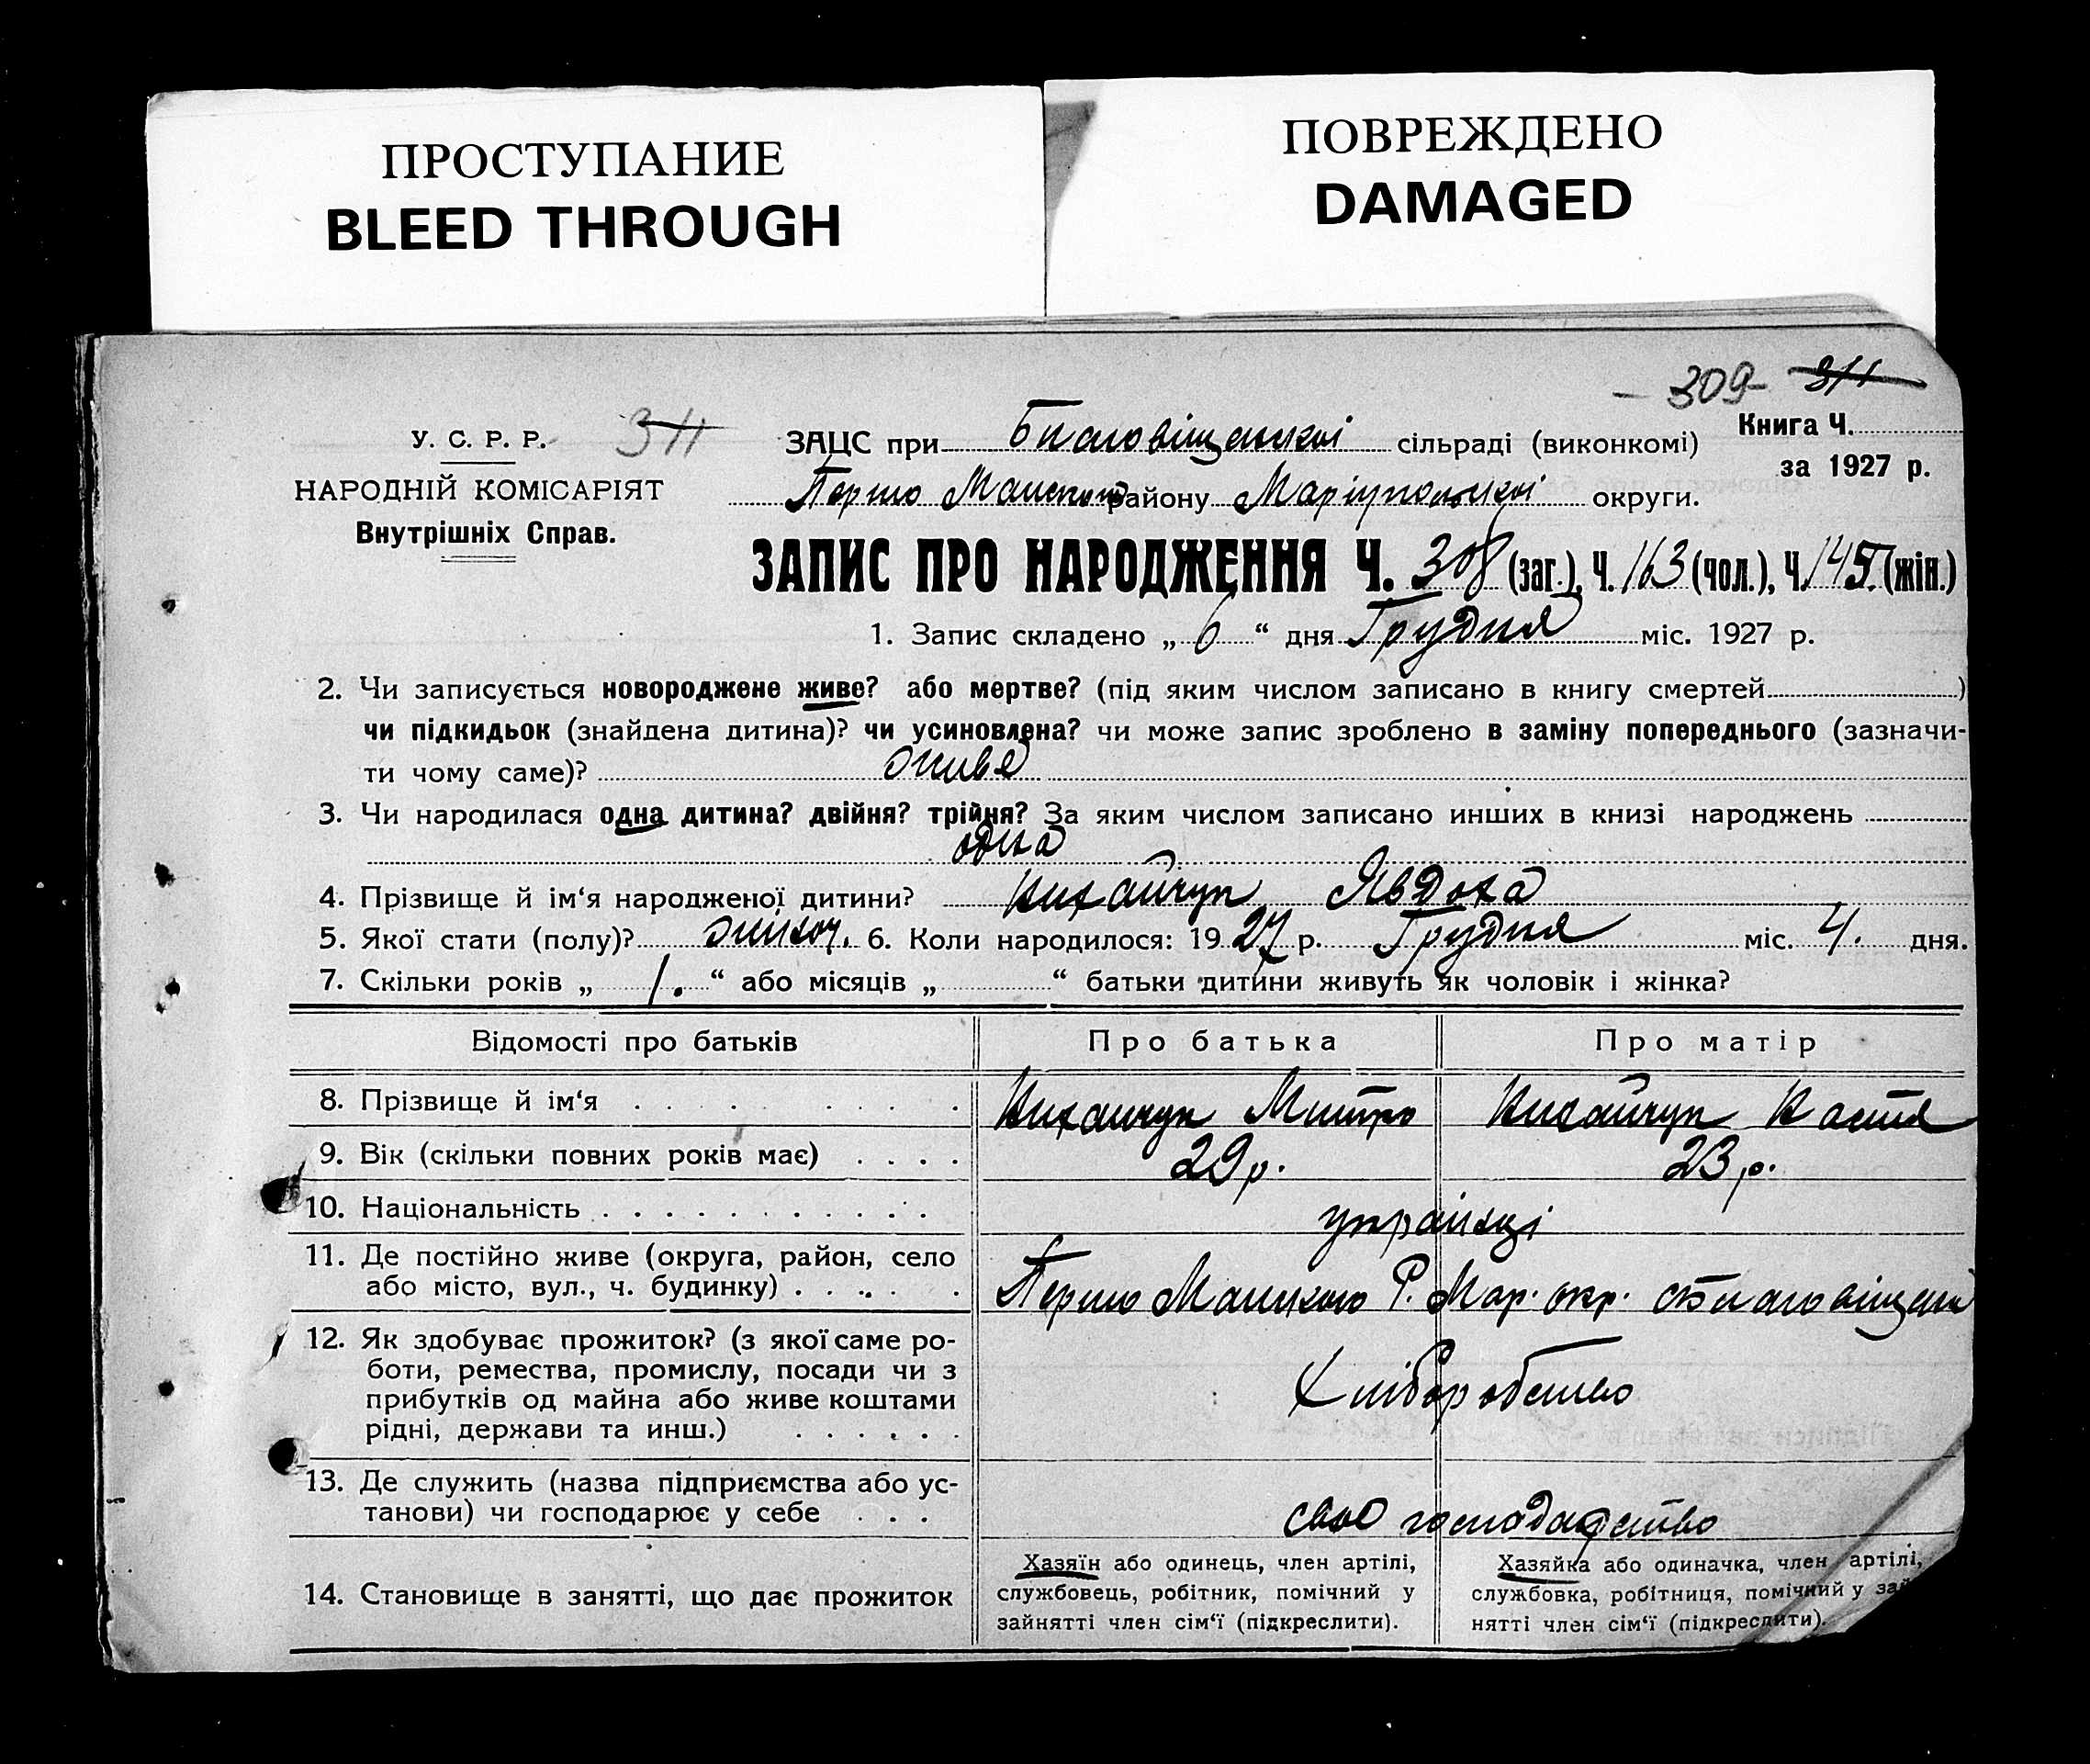 ПРОСТУПАНИЕ
BLEED THROUGH
ПОВРЕЖДЕНО
DAMAGED
309 311
У. С. Р. Р. 311
НАРОДНІЙ КОМІСАРІЯТ
Внутрішніх Справ.
Книга Ч.
за 1927 р.
ЗАЦС при сільраді (виконкомі)
Першо району Маріупольскої округи.
ЗАПИС ПРО НАРОДЖЕННЯ Ч. 308 (заг.), Ч. 163 (чол.), Ч. 145. (жін.)
1. Запис складено „ 6 “ дня Грудня міс. 1927 р.
2. Чи записується новороджене живе? або мертве? (під яким числом записано в книгу смертей )
чи підкидьок (знайдена дитина)? чи усиновлена? чи може запис зроблено в заміну попереднього (зазначи-
ти чому саме)? живе
3. Чи народилася одна дитина? двійня? трійня? За яким числом записано инших в книзі народжень
одна
4. Прізвище й ім‘я народженої дитини? Явдоха
5. Якої стати (полу)? жіноч. 6. Коли народилося: 19 27 р. Грудня міс. 4. дня.
7. Скільки років „ 1. “ або місяців „ “ батьки дитини живуть як чоловік і жінка?
Відомості про батьків Про батька Про матір
8. Прізвище й ім‘я Митро Настя
9. Вік (скільки повних років має) 29 р. 23 р.
10. Національність українці
11. Де постійно живе (округа, район, село
або місто, вул., ч. будинку) Першо Р. Мар. окр.
12. Як здобуває прожиток? (з якої саме ро-
боти, ремества, промислу, посади чи з
прибутків од майна або живе коштами
рідні, держави та инш.) Хліборобство
13. Де служить (назва підприємства або ус-
танови) чи господарює у себе своє господарство
14. Становище в занятті, що дає прожиток
Хазяїн або одинець, член артілі,
службовець, робітник, помічний у
зайнятті член сім‘ї (підкреслити).
Хазяйка або одиначка, член артілі,
службовка, робітниця, помічний у зай
нятті член сім‘ї (підкреслити).